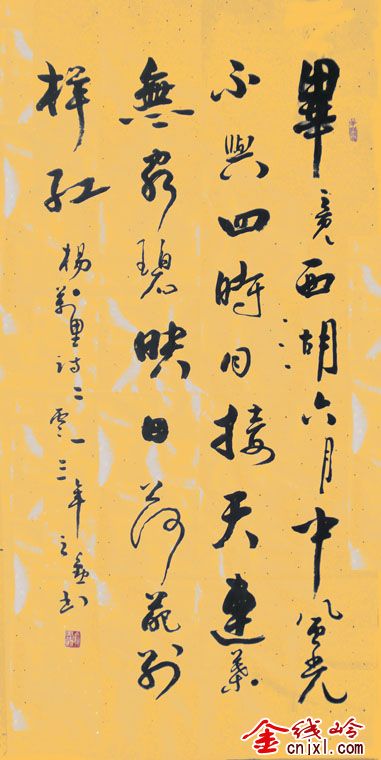 畢竟西湖六月中風光
不與四時同接天蓮葉
無窮碧映日荷花別
樣紅
楊萬里詩二零一三年之書
金线岭
cnjxl.com